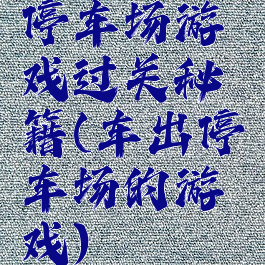 停车场游
戏过关秘
籍(车出停
车场的游
戏)